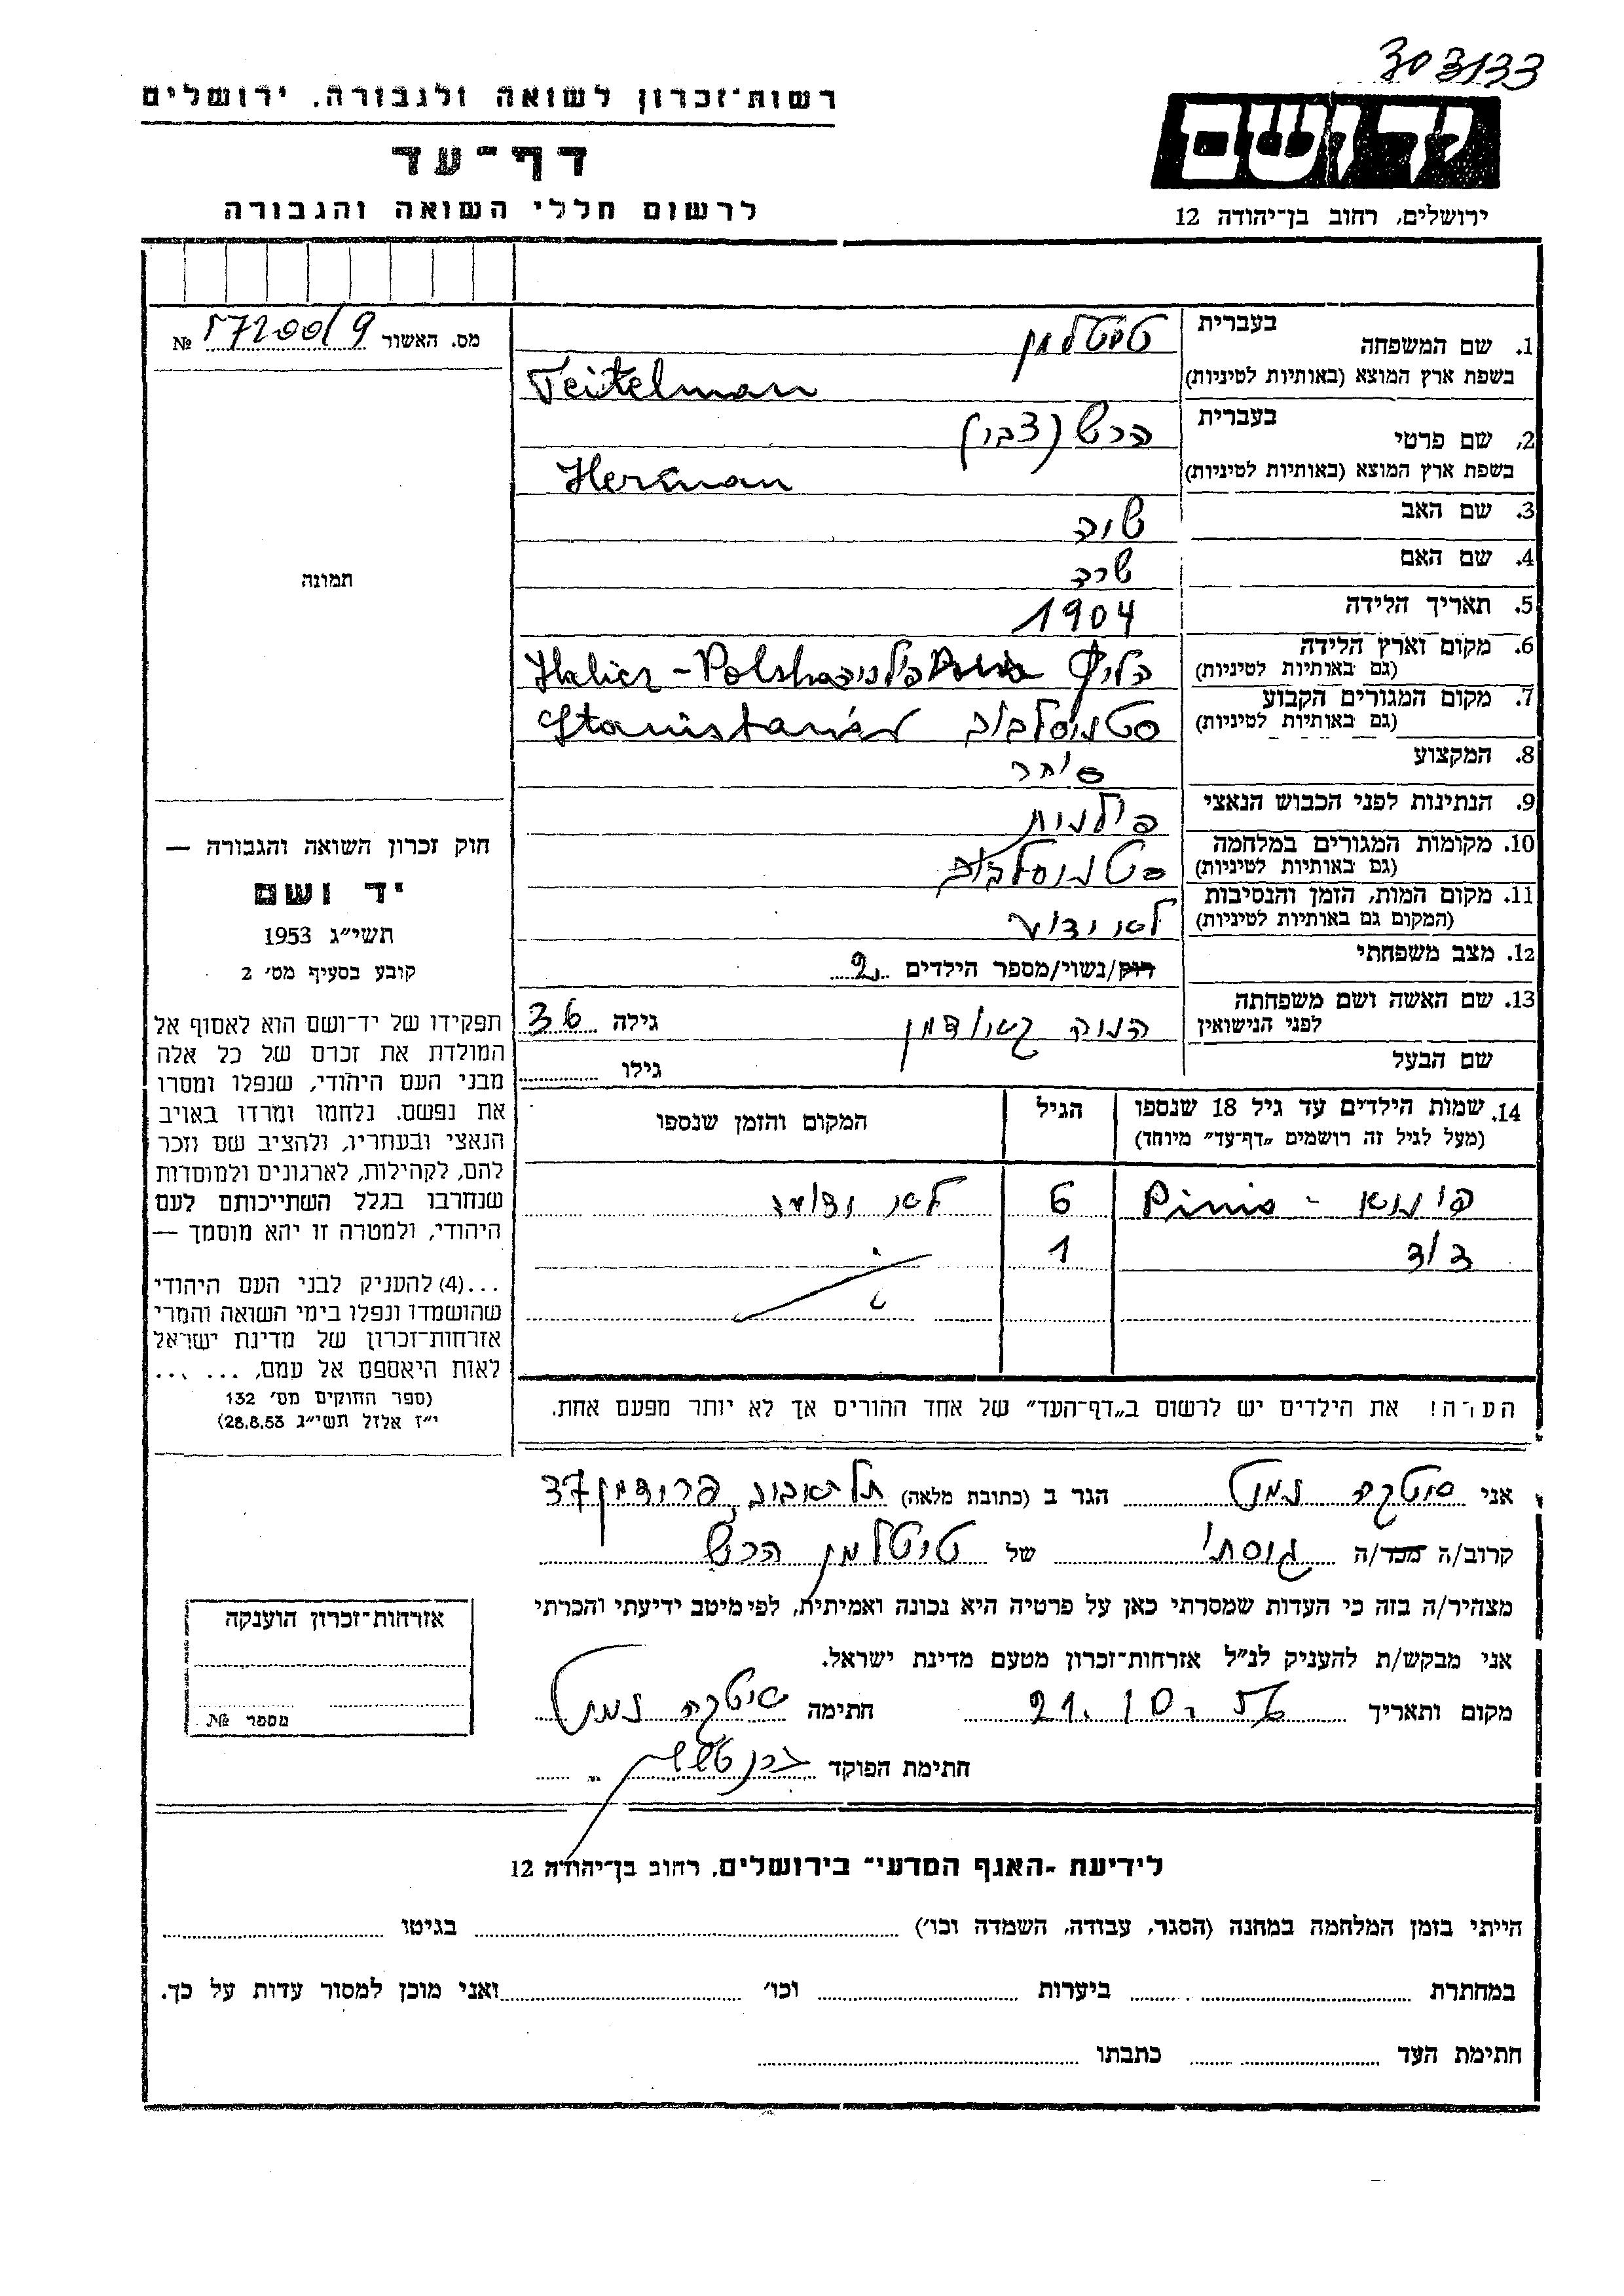 303133
רשות־זכרון לשואה ולגבורה, ירושלים
ידושם
דף־עד
לרשום חללי השואה והגבורה
ירושלים, רחוב בן־יהודה 12
מס. האשור №
1. שם המשפחה בעברית טיטלמן
בשפת ארץ המוצא (באותיות לטיניות) Teitelman
2. שם פרטי בעברית הרש (צבי)
בשפת ארץ המוצא (באותיות לטיניות) Herman
3. שם האב
4. שם האם שרה
5. תאריך הלידה 1904
6. מקום וארץ הלידה (גם באותיות לטיניות) הליץ פולניה Halicz - Polska
7. מקום המגורים הקבוע (גם באותיות לטיניות) סטניסלבוב Stanisławów
8. המקצוע סוחר
9. הנתינות לפני הכבוש הנאצי פולנית
10. מקומות המגורים במלחמה (גם באותיות לטיניות) סטניסלבוב
11. מקום המות, הזמן והנסיבות (המקום גם באותיות לטיניות) לא ידוע
12. מצב משפחתי רוק/נשוי/מספר הילדים 2
13. שם האשה ושם משפחתה לפני הנישואין גילה 36
שם הבעל גילו
תמונה
חוק זכרון השואה והגבורה —
יד ושם
תשי״ג 1953
קובע בסעיף מס׳ 2
תפקידו של יד־ושם הוא לאסוף אל
המולדת את זכרם של כל אלה
מבני העם היהודי, שנפלו ומסרו
את נפשם, נלחמו ומרדו באויב
הנאצי ובעוזריו, ולהציב שם וזכר
להם, לקהילות, לארגונים ולמוסדות
שנחרבו בגלל השתייכותם לעם
היהודי, ולמטרה זו יהא מוסמך —
...(4) להעניק לבני העם היהודי
שהושמדו ונפלו בימי השואה והמרי
אזרחות־זכרון של מדינת ישראל
לאות היאספם אל עמם, ... ...
(ספר החוקים מס׳ 132
י״ז אלול תשי״ג 28.8.53)
14. שמות הילדים עד גיל 18 שנספו הגיל המקום והזמן שנספו
(מעל לגיל זה רושמים „דף־עד” מיוחד)
פינא - Pinio 6 לא ידוע
דוד 1
הערה! את הילדים יש לרשום ב„דף־העד” של אחד ההורים אך לא יותר מפעם אחת.
אני הגר ב (כתובת מלאה) תל אביב, פרידמן 37
קרוב/ה מכר/ה גיסתי של טיטלמן הרש
מצהיר/ה בזה כי העדות שמסרתי כאן על פרטיה היא נכונה ואמיתית, לפי מיטב ידיעתי והכרתי
אני מבקש/ת להעניק לנ״ל אזרחות־זכרון מטעם מדינת ישראל.
מקום ותאריך 21.10.56 חתימה
חתימת הפוקד
אזרחות־זכרון הוענקה
מספר №
לידיעת „האגף המדעי” בירושלים, רחוב בן־יהודה 12
הייתי בזמן המלחמה במחנה (הסגר, עבודה, השמדה וכו׳) בגיטו
במחתרת ביערות וכו׳ ואני מוכן למסור עדות על כך.
חתימת העד כתבתו